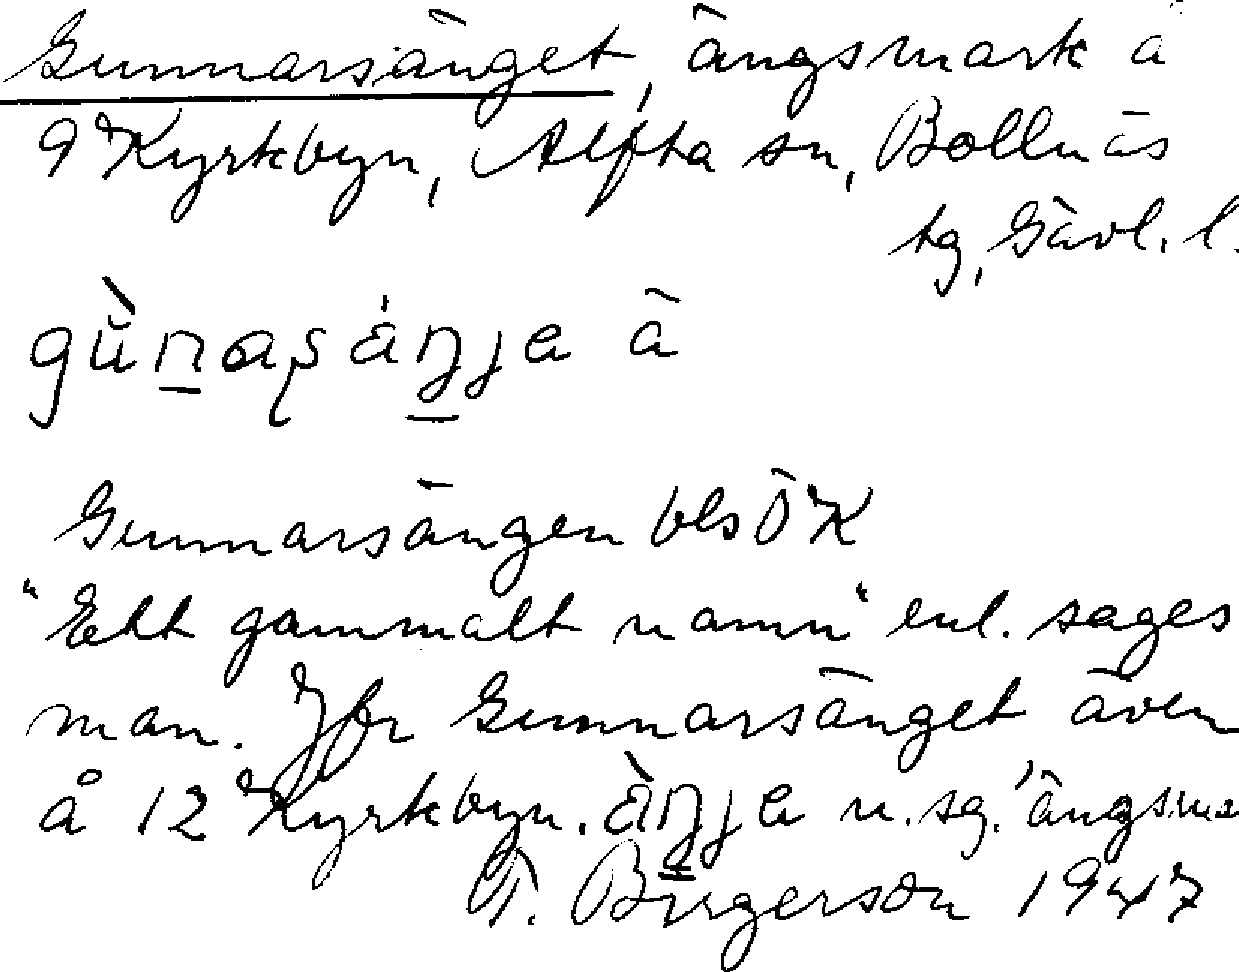 Gunnarsänget, ängsmark å
9 Kyrkbyn, Alfta sn, Bollnäs
tg, Gävl. l.
gùn̲aʂáŋ̲ja ä
Gunnarsängen bls ÖK
"Ett gammalt namn" enl. sages
man. Jfr Gunnarsänget även
å 12 Kyrkbyn. àŋ̲ja n. sg. 'ängsma
T. Birgerson 1947